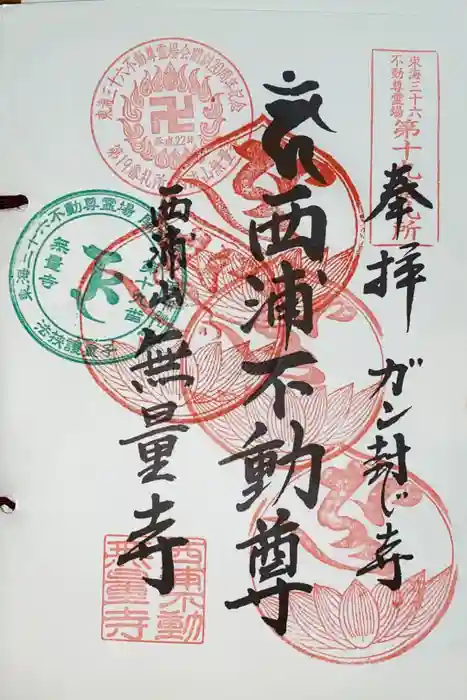 東海三十六
不動尊霊場
第十九札所
奉拝
ガン封じ寺
西浦不動尊
西浦山
無量寺
東海三十六不動尊霊場会開創20周年記念
平成22年
第19番札所
東海三十六不動尊霊場
第十九番
無量寺
西浦不動
無量寺